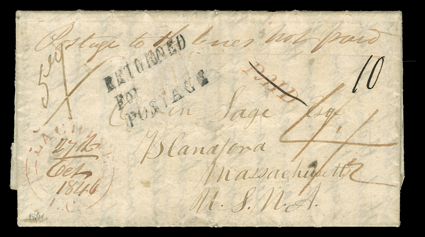 Postage to the lines not paid
RETURNED
FOR
POSTAGE
PAID
10
Sage Esqr
Blandford
Massachusetts
U. S. N. A.
LACHUTE
27th
Oct
1846